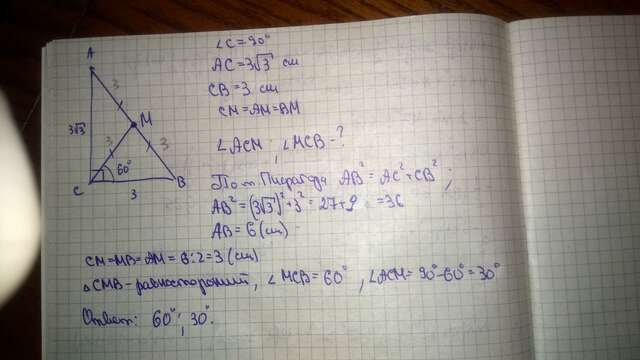 ∠C = 90°
AC = 3√3 см
CB = 3 см
CM = AM = BM
∠ACM ; ∠MCB - ?
По т. Пифагора AB² = AC² + CB² ;
AB² = (3√3)² + 3² = 27 + 9 = 36
AB = 6 (см)
A
3
M
3√3
3
3
60°
C
B
3
CM = MB = AM = 6 : 2 = 3 (см)
△CMB - равносторонний, ∠MCB = 60°, ∠ACM = 90° - 60° = 30°
Ответ: 60° ; 30°.